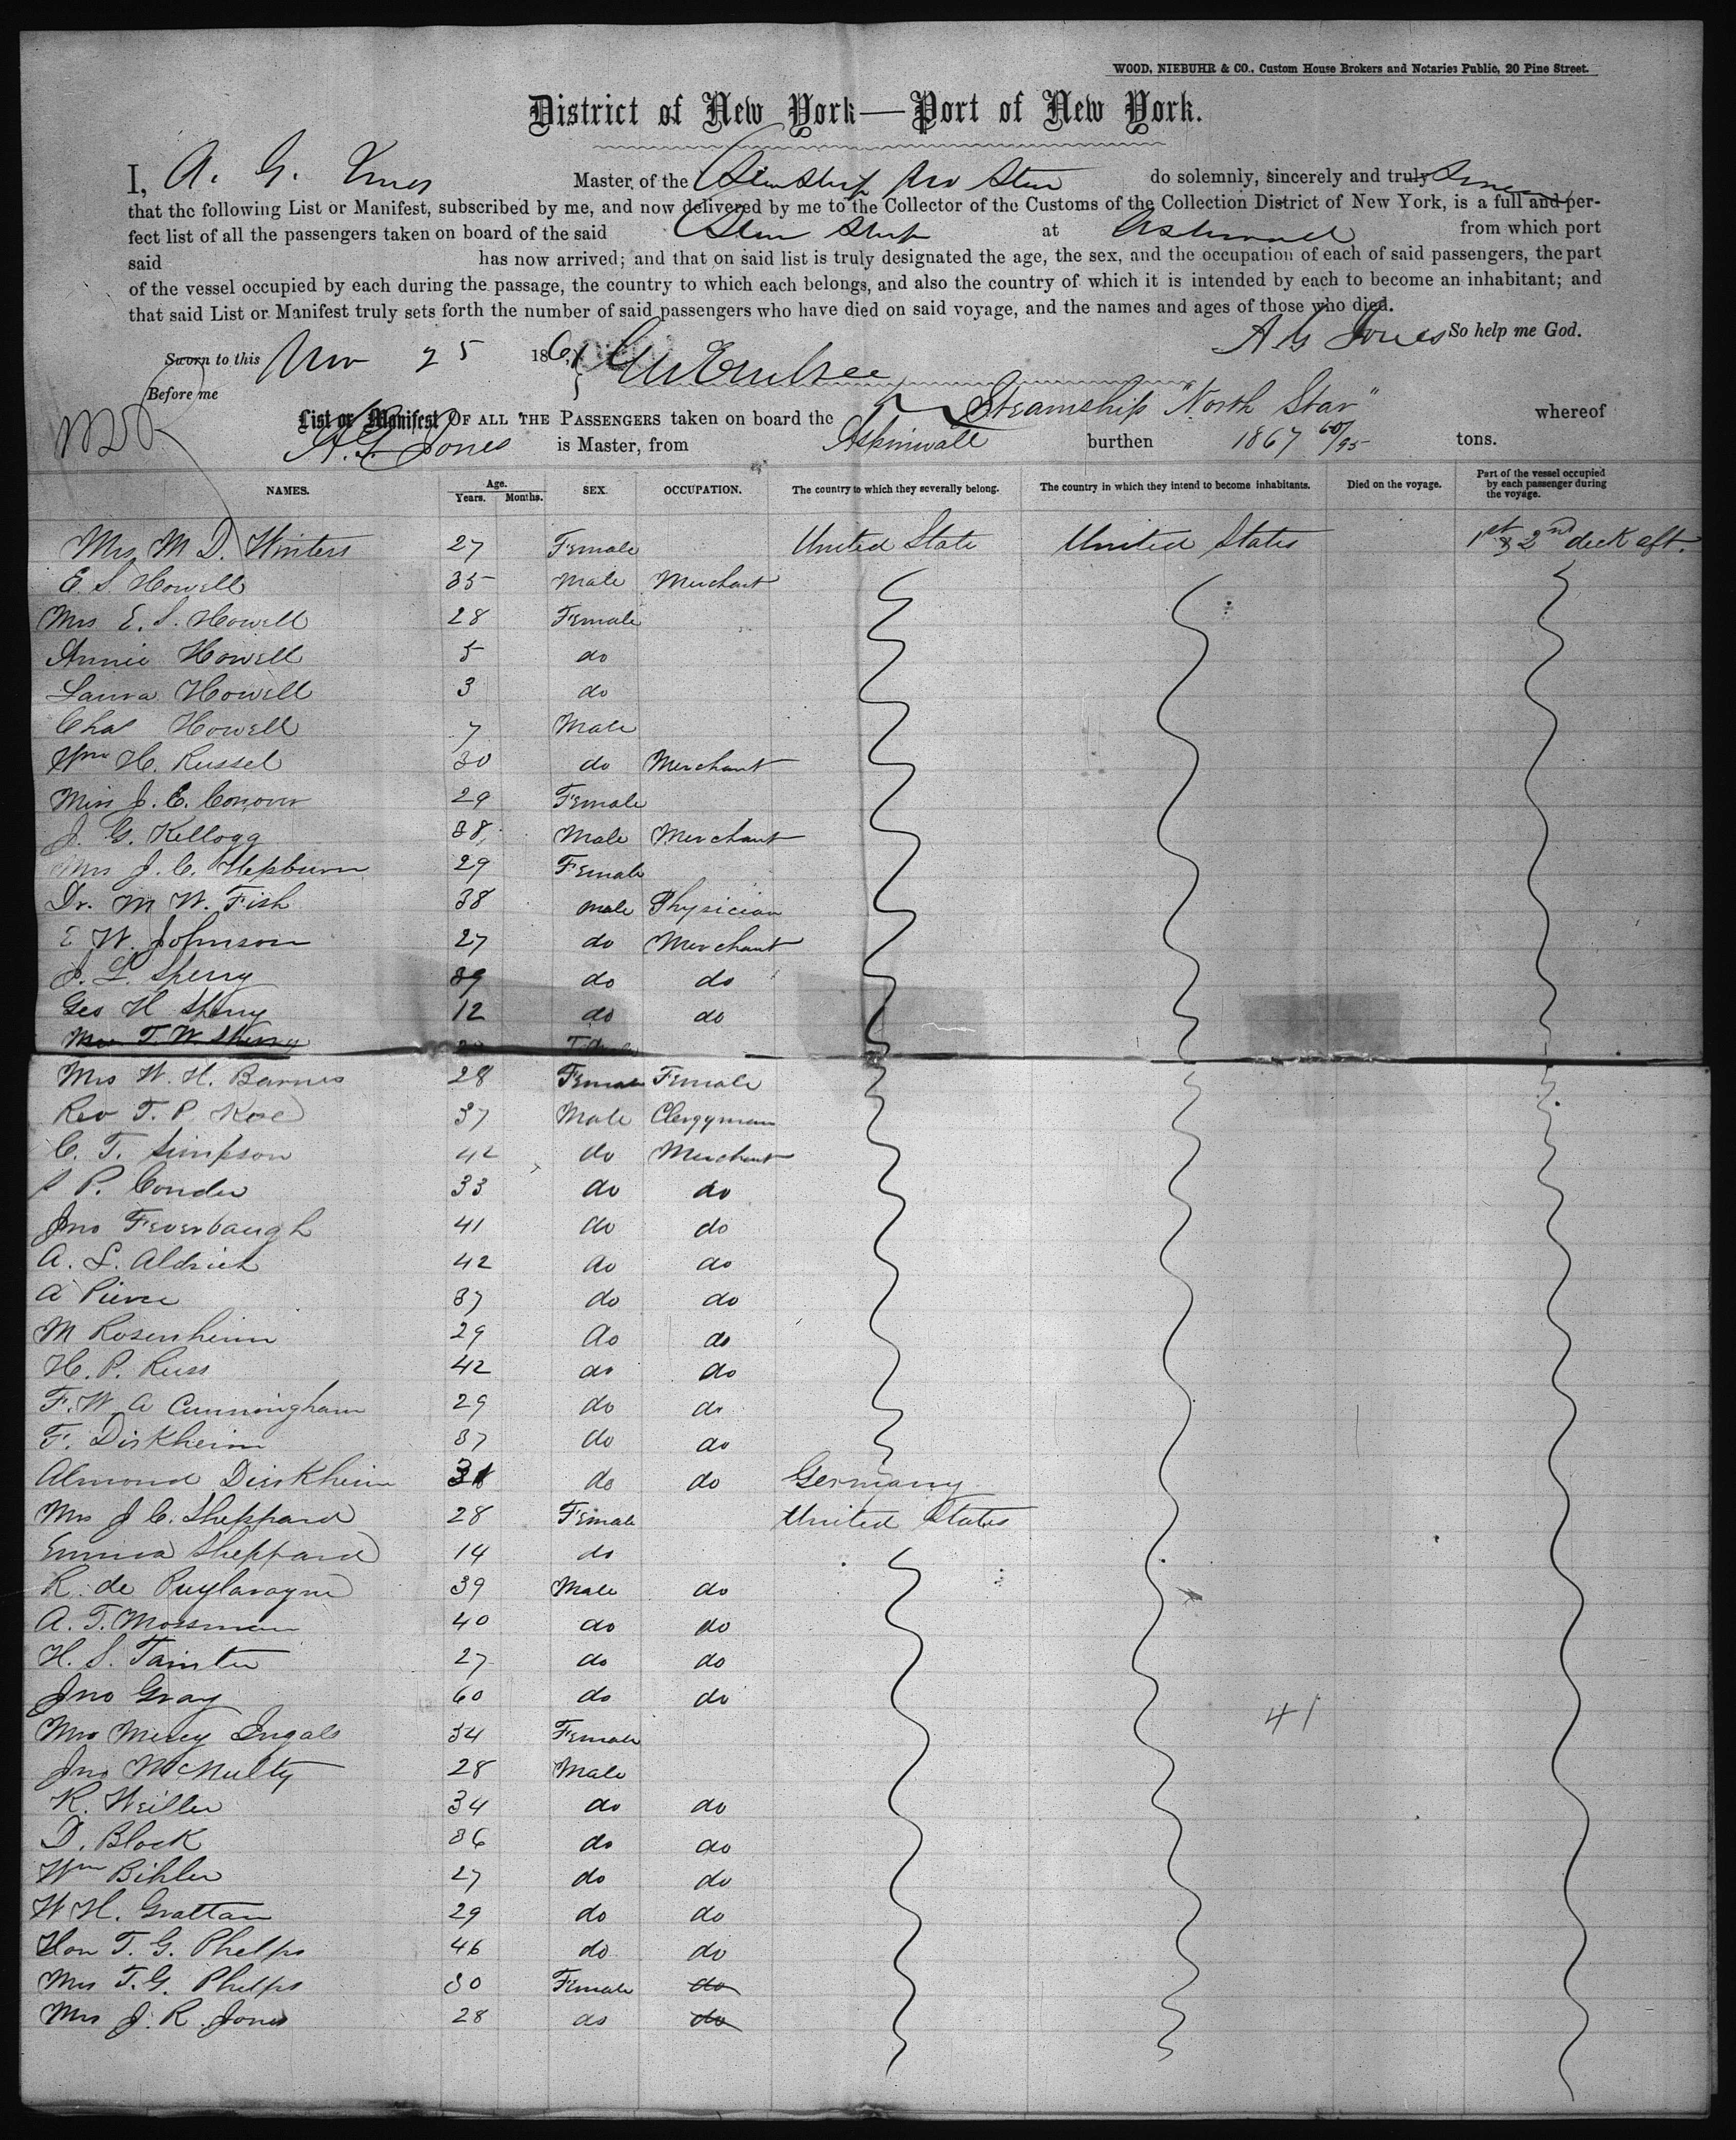 WOOD, NIEBUHR & CO., Custom House Brokers and Notaries Public, 20 Pine Street.
District of New York—Port of New York.
I, A. G. Jones Master of the Steam Ship Nor Star do solemnly, sincerely and truly Swear
that the following List or Manifest, subscribed by me, and now delivered by me to the Collector of the Customs of the Collection District of New York, is a full and per-
fect list of all the passengers taken on board of the said Steam Ship at Aspinwall from which port
said has now arrived; and that on said list is truly designated the age, the sex, and the occupation of each of said passengers, the part
of the vessel occupied by each during the passage, the country to which each belongs, and also the country of which it is intended by each to become an inhabitant; and
that said List or Manifest truly sets forth the number of said passengers who have died on said voyage, and the names and ages of those who died.
A G Jones So help me God.
Sworn to this Nov 25 1861
Before me
List or Manifest OF ALL THE PASSENGERS taken on board the Steamship "North Star" whereof
A. G. Jones is Master, from Aspinwall burthen 1867 60/95 tons.
NAMES. Age. Years. Months. SEX. OCCUPATION. The country to which they severally belong. The country in which they intend to become inhabitants. Died on the voyage. Part of the vessel occupied by each passenger during the voyage.
Mrs M D. Winters 27 Female United State United States 1st & 2nd deck aft.
E. S. Howell 35 Male Merchant
Mrs E. S. Howell 28 Female
Annie Howell 5 do
Laura Howell 3 do
Chas Howell 7 Male
Wm H. Russel 30 do Merchant
Miss J. E. Conover 29 Female
J. G. Kellogg 38 Male Merchant
Mrs J. C. Hepburn 29 Female
Dr. M W. Fish 38 male Physician
E W. Johnson 27 do Merchant
J. L. Sperry 39 do do
Geo H Sperry 12 do do
T. W. Sherry
Mrs W. H. Barnes 28 Female Female
Rev T. P. Rose 37 Male Clergyman
C. T. Simpson 42 do Merchant
S P. Conder 33 do do
Jno Feverbaugh 41 do do
A. L. Aldrich 42 do do
A Pierce 37 do do
M Rosenheim 29 do do
H. P. Russ 42 do do
F. W A Cunningham 29 do do
F. Dirkheim 37 do do
Almond Dirkheim 31 do do Germany
Mrs J C. Sheppard 28 Female United States
Emma Sheppard 14 do
R. de Puylavayne 39 Male do
A. T. Mossman 40 do do
H. S. Tainter 27 do do
Jno Gray 60 do do
41
Mrs Mercy Ingals 34 Female
Jno McNulty 28 Male
K. Weiller 34 do do
D. Block 36 do do
Wm Bihler 27 do do
W H. Grattan 29 do do
Hon T. G. Phelps 46 do do
Mrs T. G. Phelps 30 Female do
Mrs J. R. Jones 28 do do